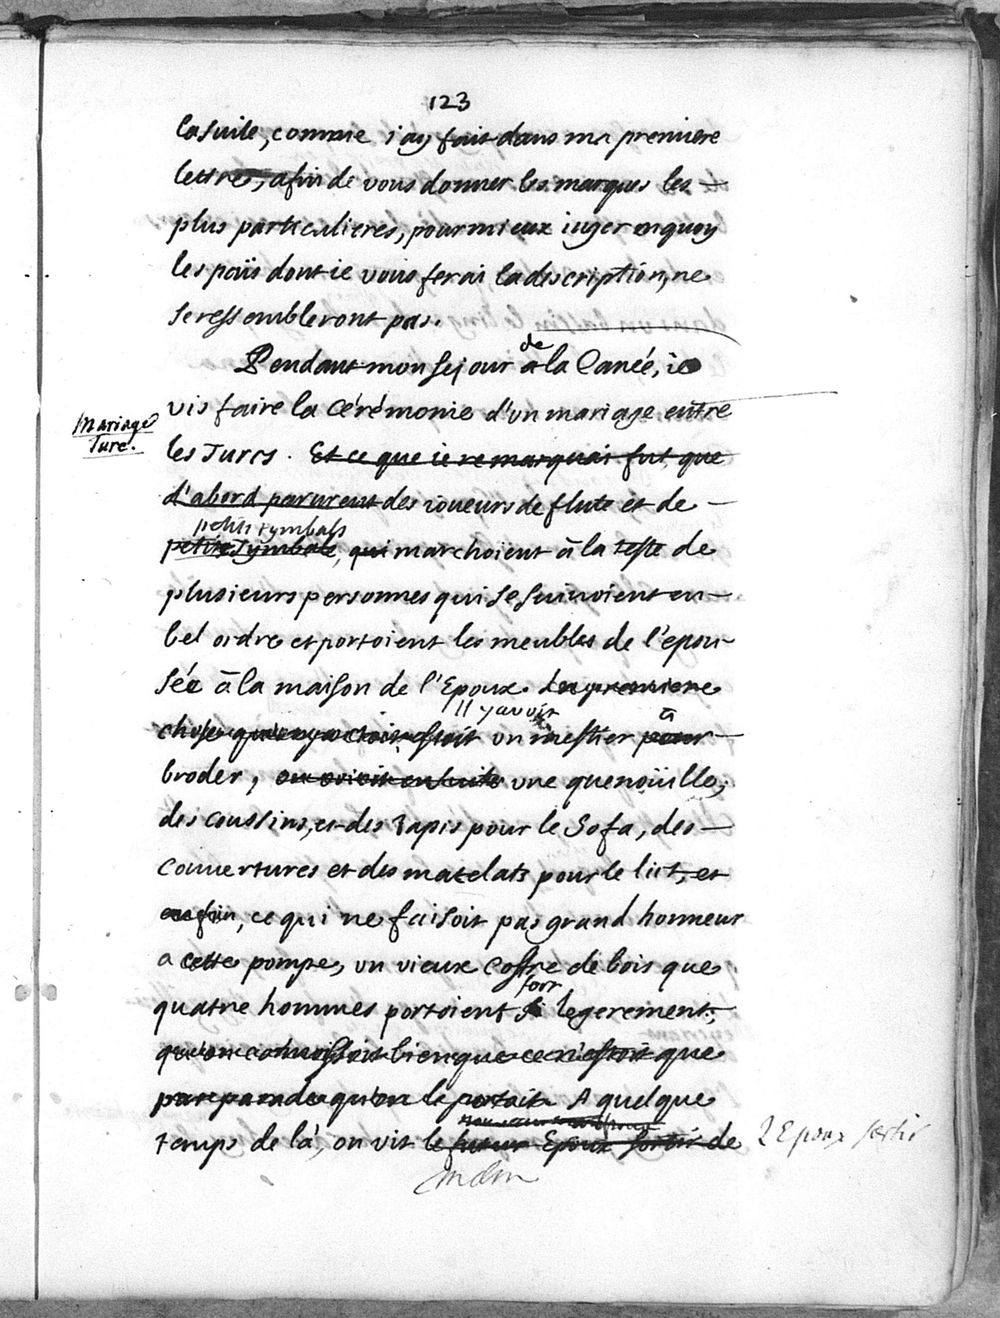 123
la suite, comme i'ay fait dans ma premiere
lettre, afin de vous donner les marques les
plus particulieres, pour mieux iuger en quoy
les païs dont ie vous ferai la description, ne
se ressembleront pas.
de
Pendant mon sejour a la Canée, ie
vis faire la cérémonie d'un mariage entre
Mariage
Turc.
les Turcs. Et ce que ie remarquai fut que
d'abord parurent des ioueurs de flute et de
petits tymbals
petits Tymbals, qui marchoient à la teste de
plusieurs personnes qui se suivoient en
bel ordre et portoient les meubles de l'epou-
sée à la maison de l'Epoux. La premiere
Il y avoit à
chose un mestier pour
broder, on voioit ensuite une quenoüille,
des coussins, et des Tapis pour le Sofa, des
couvertures et des matelats pour le lict, et
enfin, ce qui ne faisoit pas grand honneur
a cette pompe, un vieux coffre de bois que
fort
quatre hommes portoient si legerement,
qu'on connoissoit bien que ce n'estoit que
par parade qu'on le portoit. A quelque
temps de là, on vit le futur Epoux sortir de
l'Epoux sortir